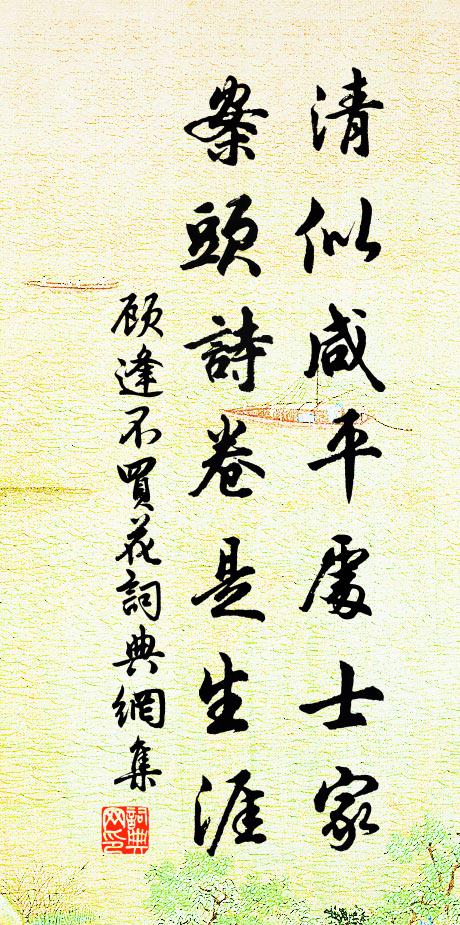 清似咸平處士家
案頭詩卷是生涯
顾逢不買花詞典網集
詞典网印